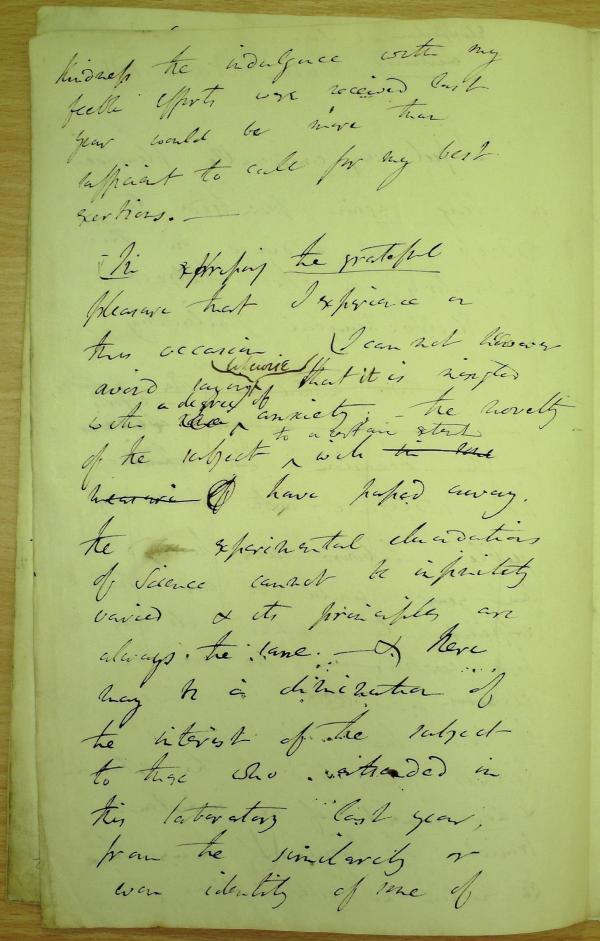 kindness the indulgence with my
feeble efforts were received last
year would be more than
sufficient to call for my best
exertions. —
In expressing the grateful
pleasure that I experience on
this occasion I can not however
likewise
avoid saying that it is mingled
a degree of
with anxiety. – the novelty
to a certain extent
of the subject will in some
measure have passed away.
The experimental elucidations
of Science cannot be infinitely
varied & its principles are
always the same. — & there
may be a diminution of
the interest of the subject
to those who attended in
this laboratory last year,
from the similarity or
even identity of some of